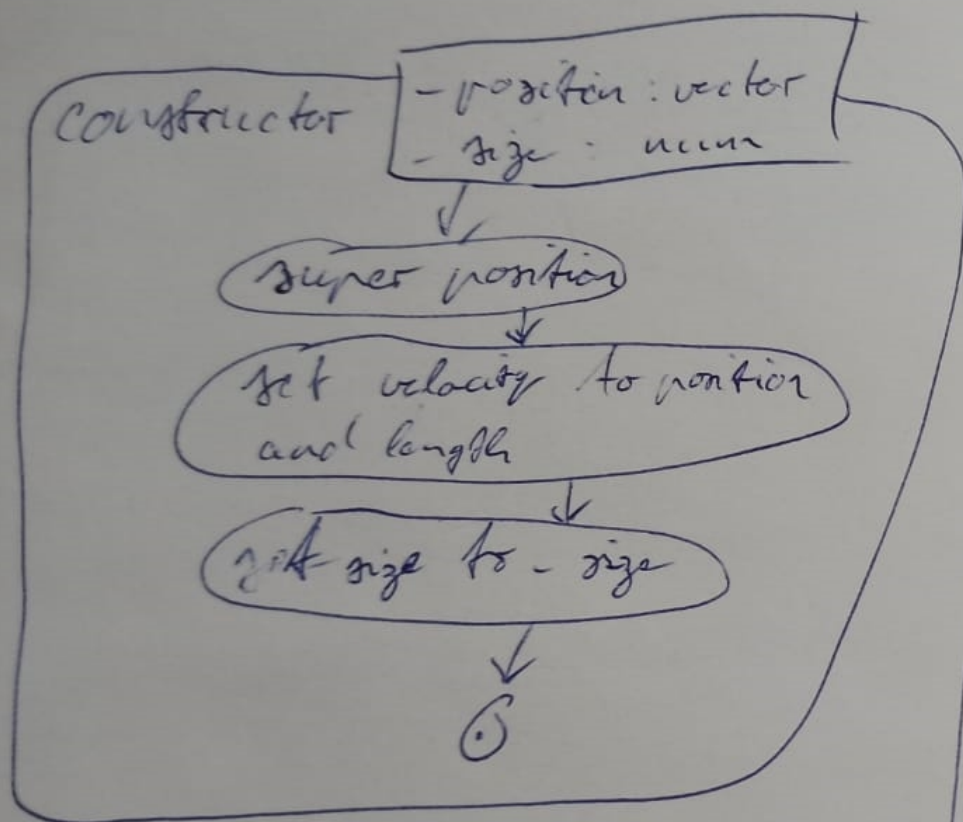 constructor
- position : vector
- size : num
super position
set velocity to position
and length
set size to _ size